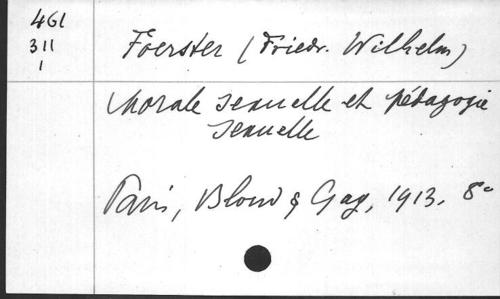 461
311
1
Foerster (Friedr. Wilhelm)
Morale sexuelle et pédagogie
sexuelle
Paris, Bloud & Gay, 1913. 8°